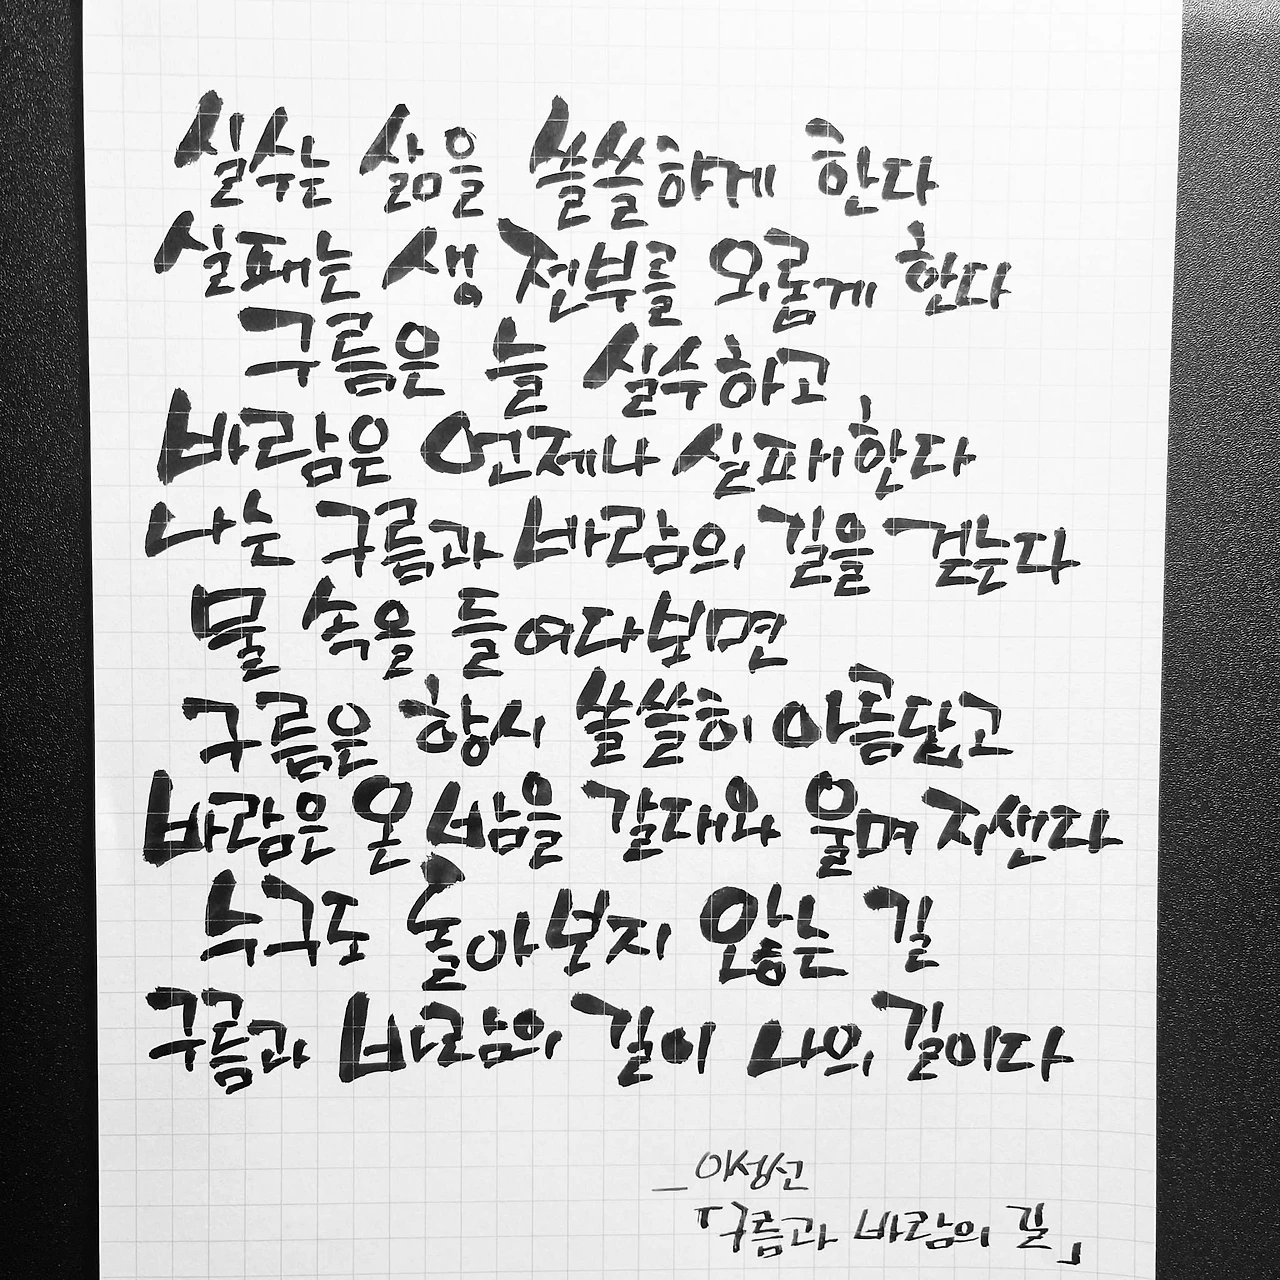 실수는 삶을 쓸쓸하게 한다
실패는 생 전부를 외롭게 한다
구름은 늘 실수하고
바람은 언제나 실패한다
나는 구름과 바람의 길을 걷는다
물 속을 들여다보면
구름은 항시 쓸쓸히 아름답고
바람은 온 밤을 갈대와 울며 지샌다
누구도 돌아보지 않는 길
구름과 바람의 길이 나의 길이다
_이성선
「구름과 바람의 길」